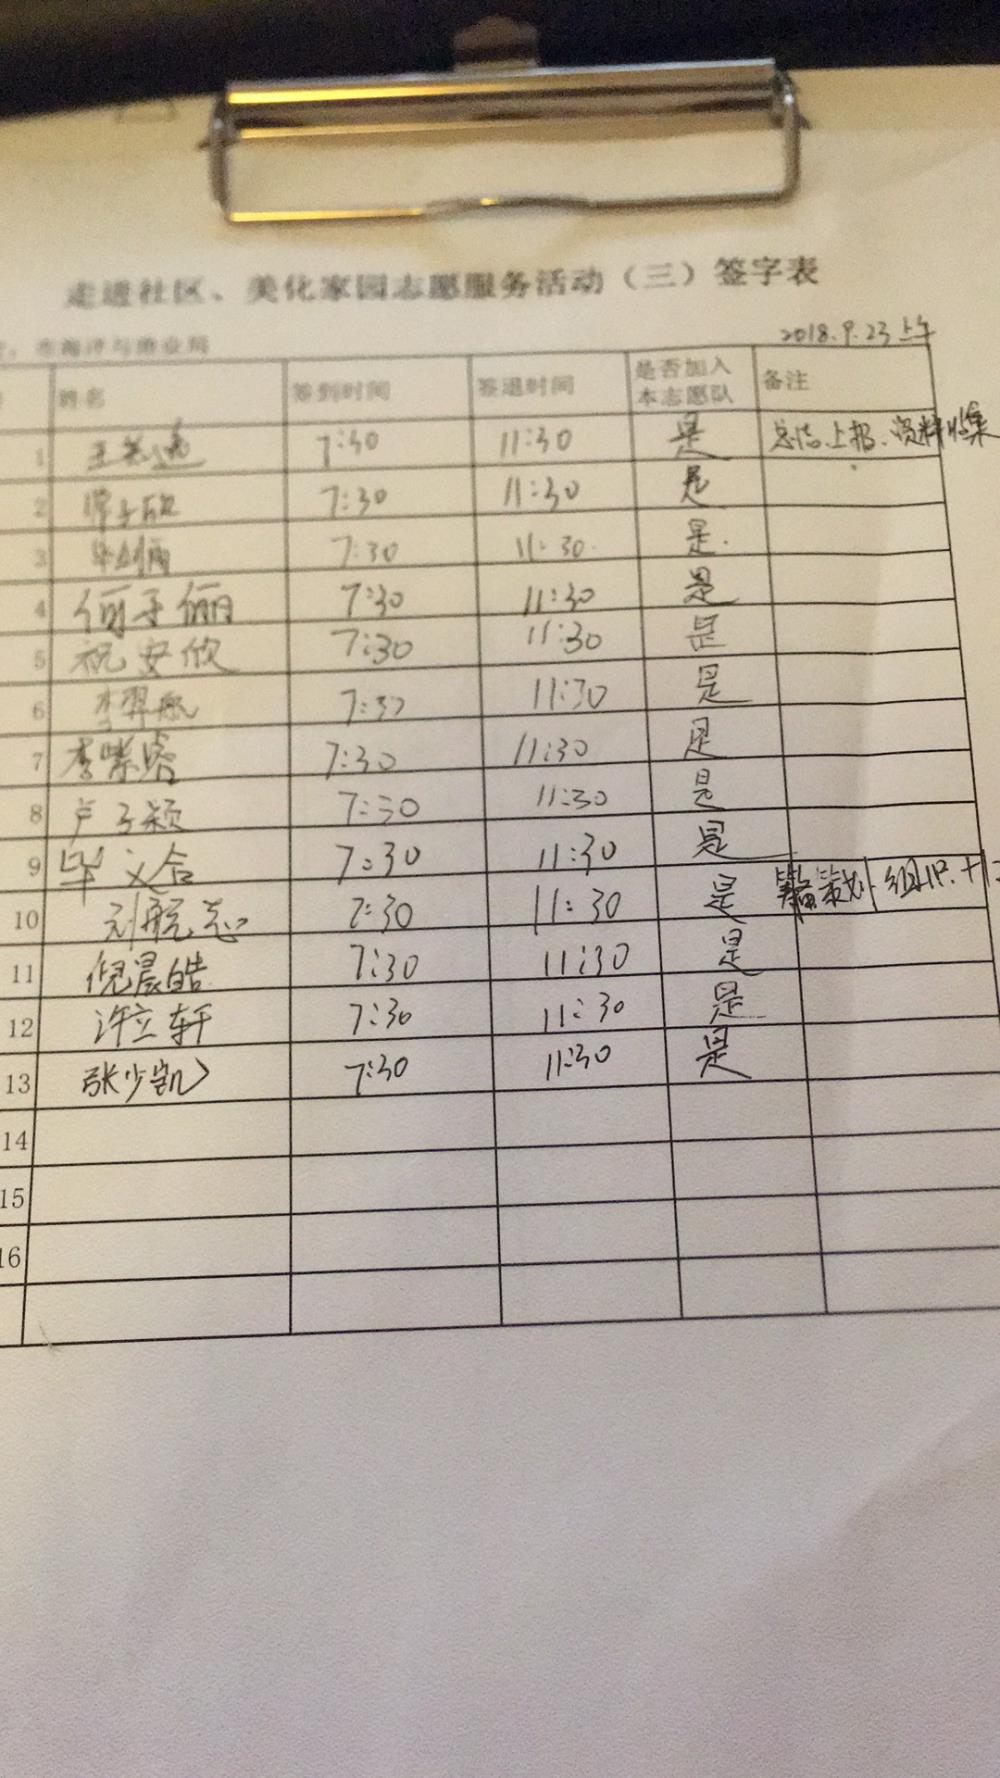 走进社区、美化家园志愿服务活动（三）签字表
市海洋与渔业局 2018.9.23上午
姓名 签到时间 签退时间 是否加入本志愿队 备注
1 7:30 11:30 是 总结.上报.资料收集
2 7:30 11:30 是
3 7:30 11:30 是
4 何子俪 7:30 11:30 是
5 祝安欣 7:30 11:30 是
6 李羿航 7:30 11:30 是
7 李紫睿 7:30 11:30 是
8 卢子颖 7:30 11:30 是
9 毕文合 7:30 11:30 是
10 7:30 11:30 是 策划 组织
11 倪晨皓 7:30 11:30 是
12 许立轩 7:30 11:30 是
13 张少凯 7:30 11:30 是
14
15
16